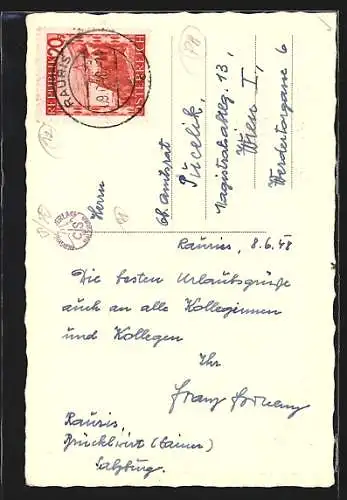 REPUBLIK 20
ÖSTERREICH
RAURIS
Herrn
Amtsrat
Pücelik,
Magistratsabtlg. 13,
Wien I.,
Werdertorgasse 6
VERLAG
Rauris, 8.6.48
Die besten Urlaubsgrüße
auch an alle Kolleginnen
und Kollegen
Ihr
Franz
Rauris,
Bräcklwirt
Salzburg.